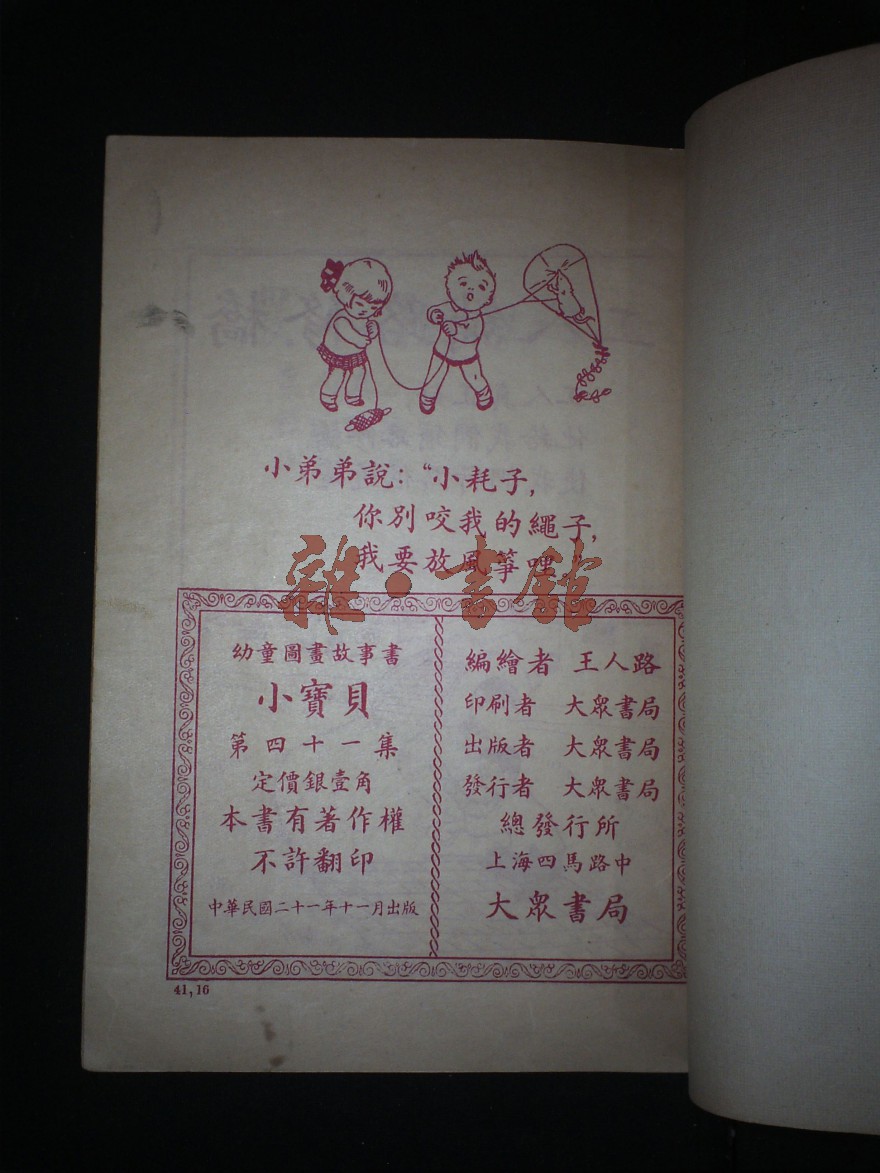 小弟弟說：“小耗子，
你別咬我的繩子，
我要放風箏哩
雜·書館
幼童圖畫故事書
小寶貝
第四十一集
定價銀壹角
本書有著作權
不許翻印
中華民國二十一年十一月出版
編繪者 王人路
印刷者 大眾書局
出版者 大眾書局
發行者 大眾書局
總發行所
上海四馬路中
大眾書局
41,16